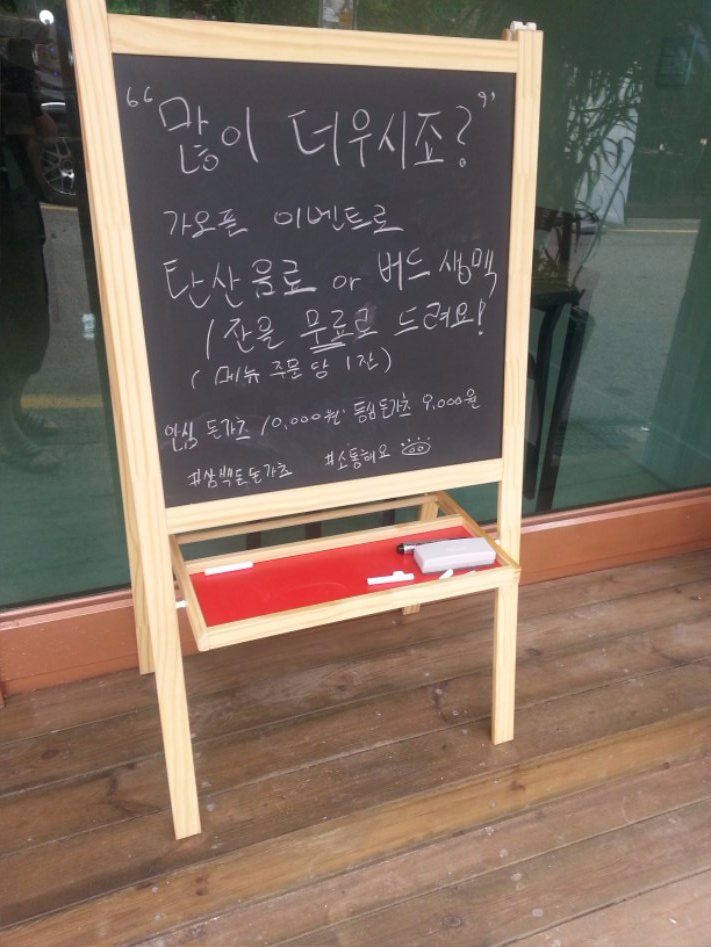 “많이 더우시죠?”
가오픈 이벤트로
탄산음료 or 버드 생맥
1잔을 무료로 드려요!
(메뉴 주문 당 1잔)
안심 돈가츠 10,000원. 등심돈가츠 9,000원
#삼백돈돈가츠 #소통해요